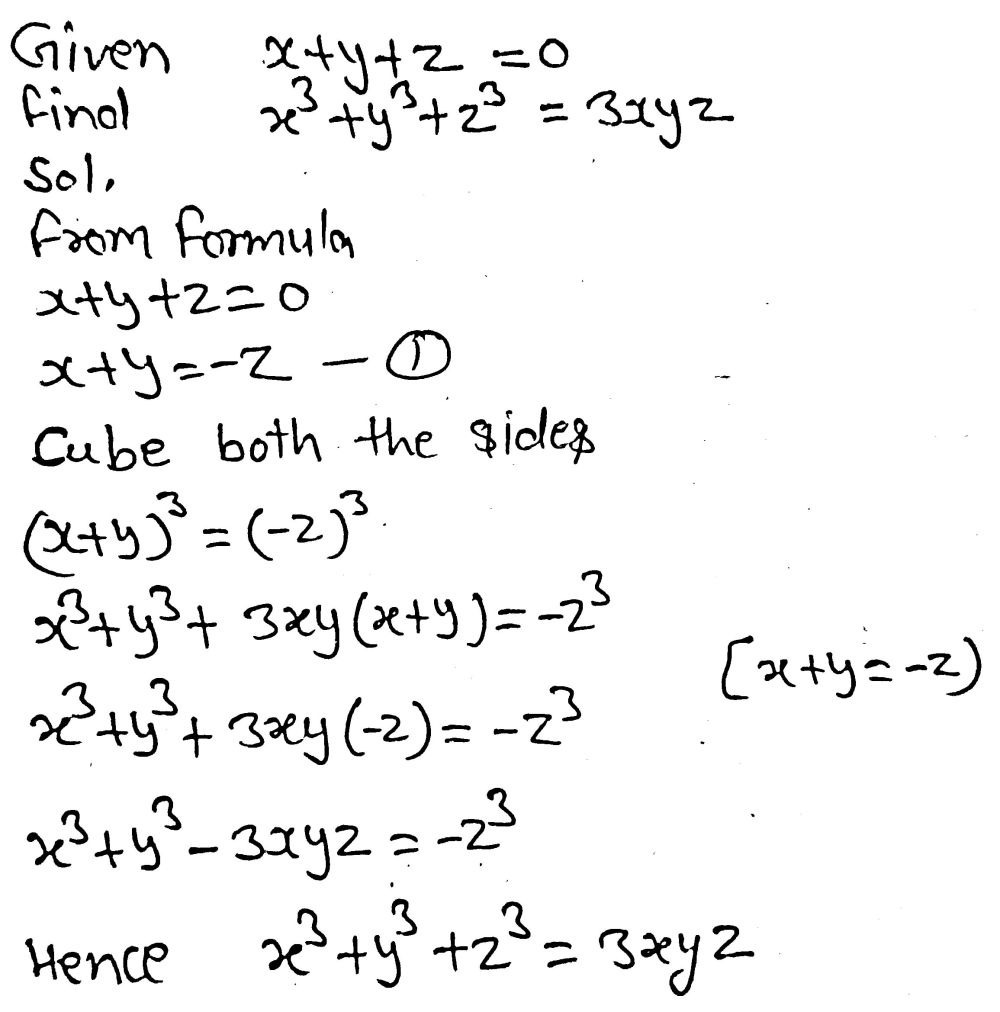 Given x+y+z=0
find x³+y³+z³ = 3xyz
Sol.
from formula
x+y+z=0
x+y=-z — ①
Cube both the sides
(x+y)³ = (-z)³
x³+y³+ 3xy(x+y)=-z³
[x+y=-z)
x³+y³+ 3xy(-z)= -z³
x³+y³-3xyz = -z³
Hence x³+y³+z³= 3xyz